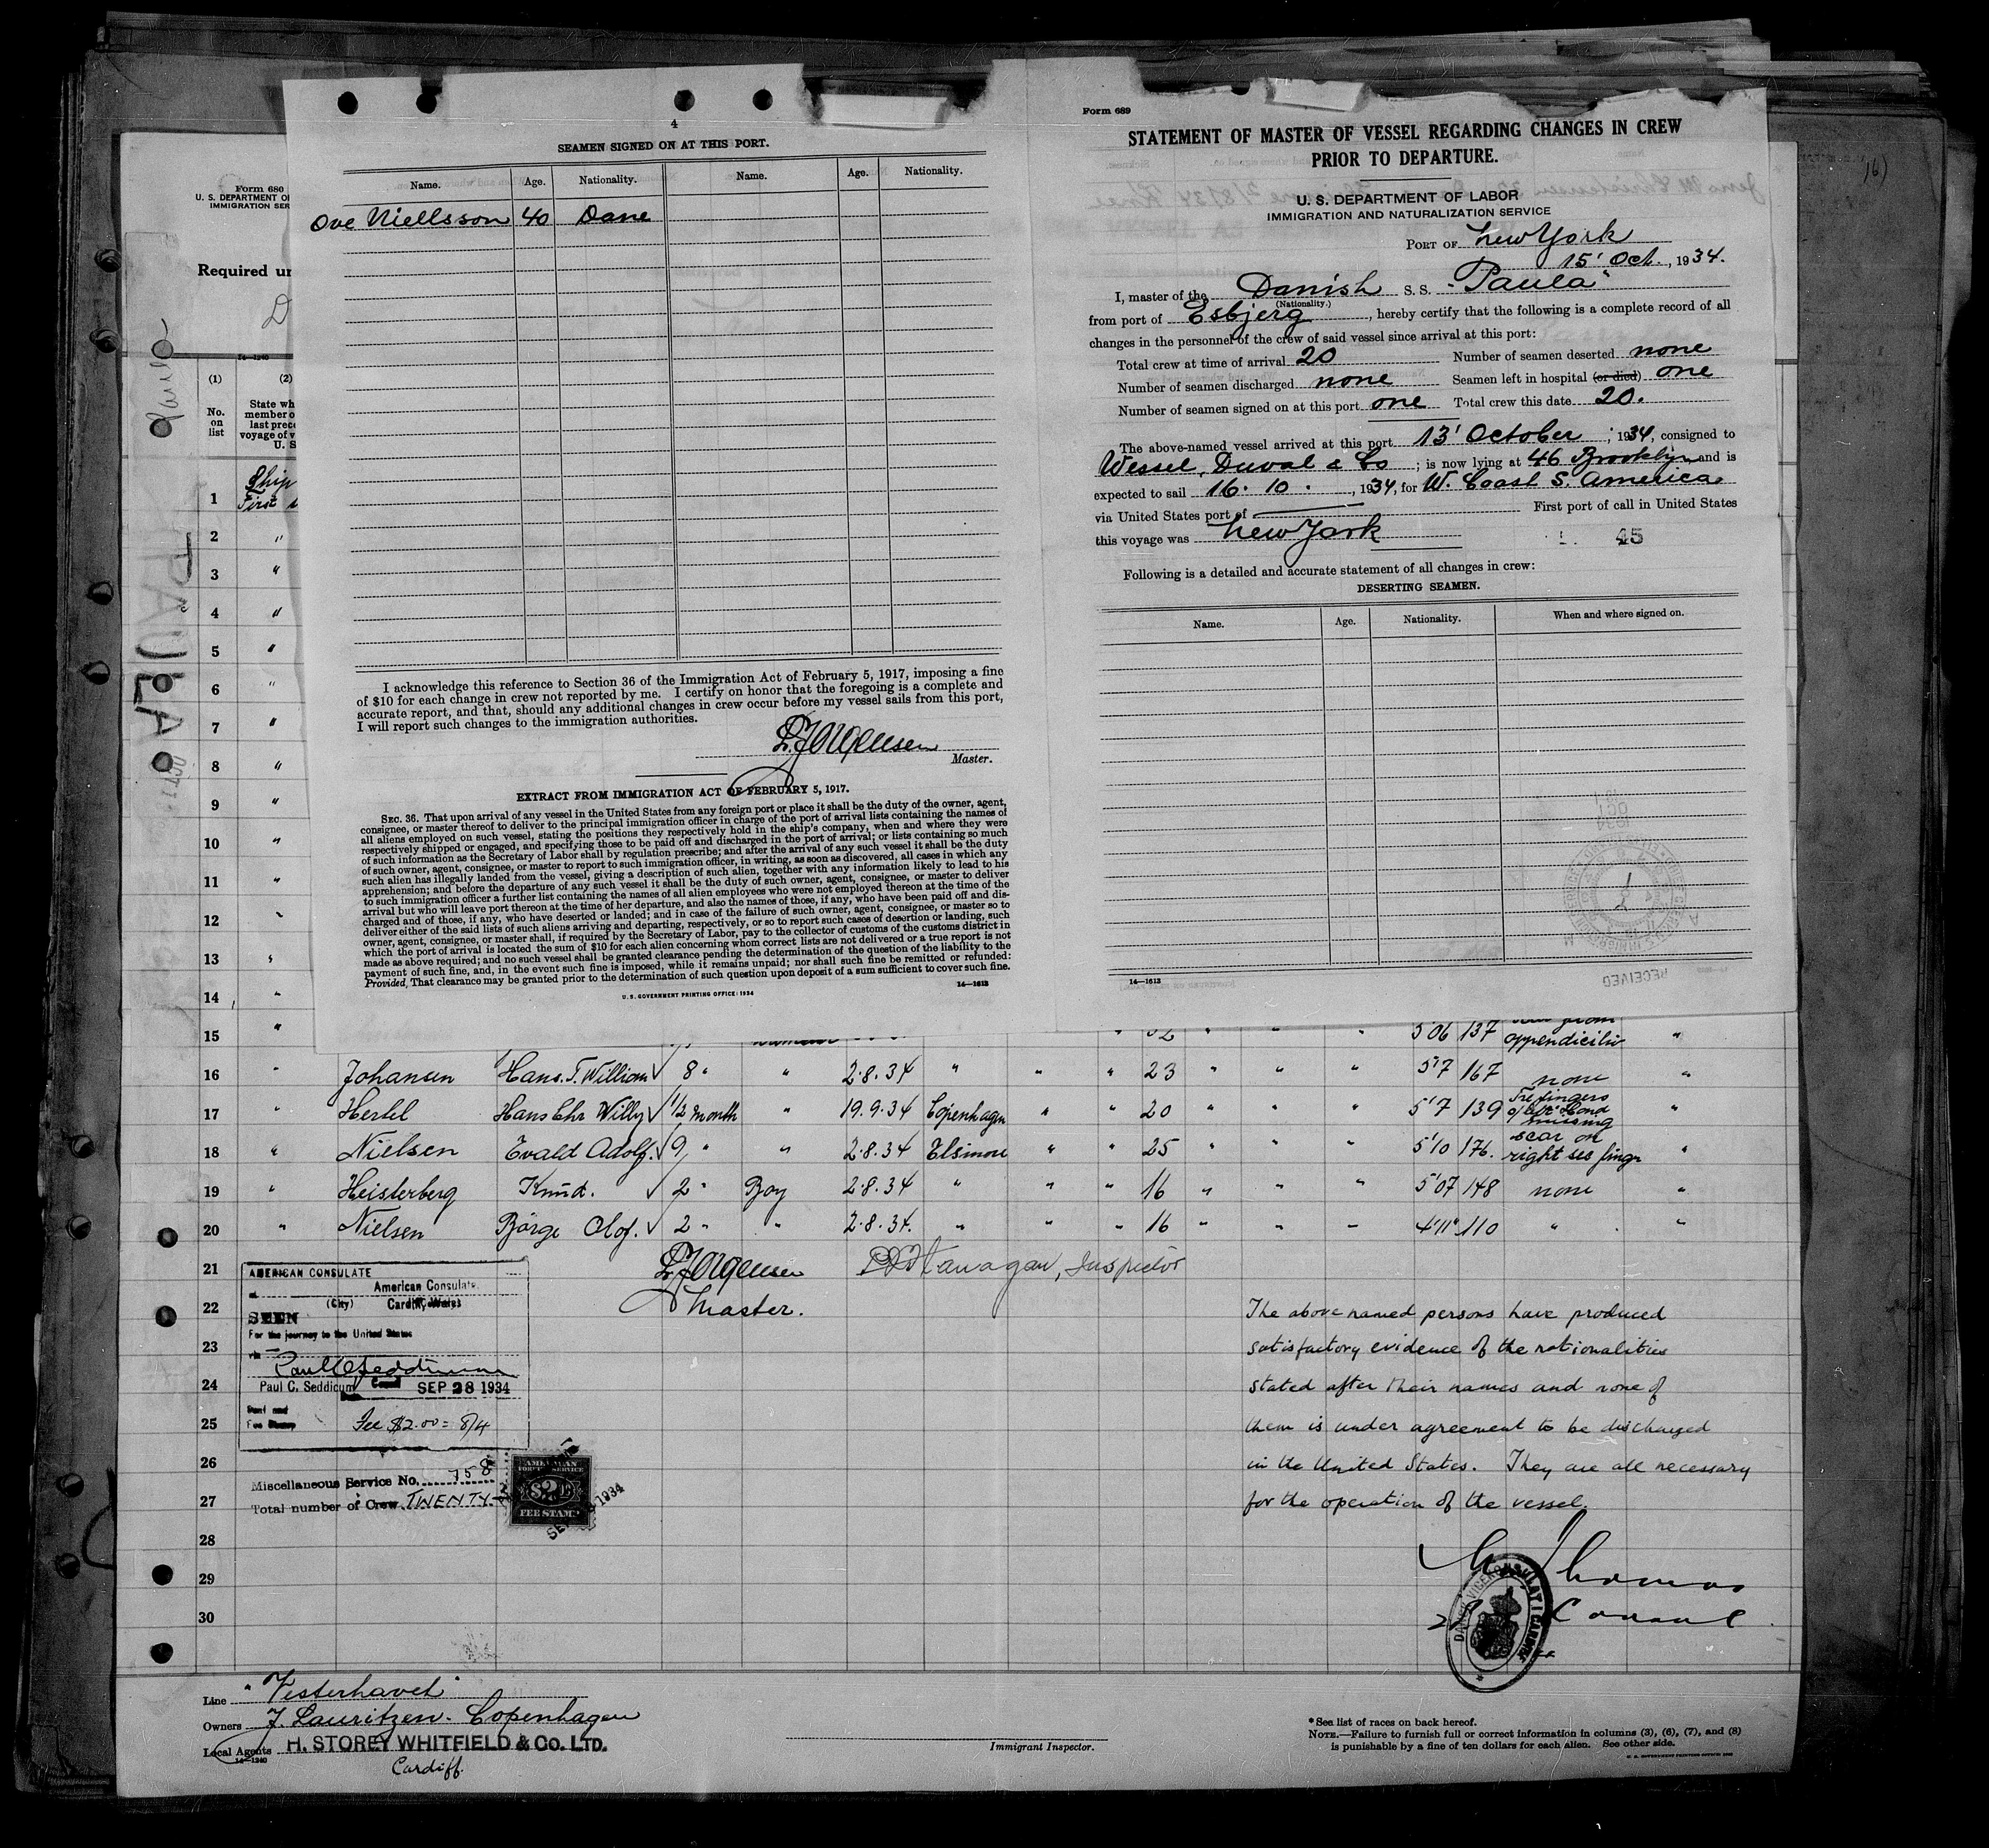 4
SEAMEN SIGNED ON AT THIS PORT.
Name. Age. Nationality. Name. Age. Nationality.
Ove Niellsson 40 Dane
I acknowledge this reference to Section 36 of the Immigration Act of February 5, 1917, imposing a fine
of $10 for each change in crew not reported by me. I certify on honor that the foregoing is a complete and
accurate report, and that, should any additional changes in crew occur before my vessel sails from this port,
I will report such changes to the immigration authorities.
L. Jorgensen
Master.
EXTRACT FROM IMMIGRATION ACT OF FEBRUARY 5, 1917.
SEC. 36. That upon arrival of any vessel in the United States from any foreign port or place it shall be the duty of the owner, agent,
consignee, or master thereof to deliver to the principal immigration officer in charge of the port of arrival lists containing the names of
all aliens employed on such vessel, stating the positions they respectively hold in the ship's company, when and where they were
respectively shipped or engaged, and specifying those to be paid off and discharged in the port of arrival; or lists containing so much
of such information as the Secretary of Labor shall by regulation prescribe; and after the arrival of any such vessel it shall be the duty
of such owner, agent, consignee, or master to report to such immigration officer, in writing, as soon as discovered, all cases in which any
such alien has illegally landed from the vessel, giving a description of such alien, together with any information likely to lead to his
apprehension; and before the departure of any such vessel it shall be the duty of such owner, agent, consignee, or master to deliver
to such immigration officer a further list containing the names of all alien employees who were not employed thereon at the time of the
arrival but who will leave port thereon at the time of her departure, and also the names of those, if any, who have been paid off and dis-
charged and of those, if any, who have deserted or landed; and in case of the failure of such owner, agent, consignee, or master so to
deliver either of the said lists of such aliens arriving and departing, respectively, or so to report such cases of desertion or landing, such
owner, agent, consignee, or master shall, if required by the Secretary of Labor, pay to the collector of customs of the customs district in
which the port of arrival is located the sum of $10 for each alien concerning whom correct lists are not delivered or a true report is not
made as above required; and no such vessel shall be granted clearance pending the determination of the question of the liability to the
payment of such fine, and, in the event such fine is imposed, while it remains unpaid; nor shall such fine be remitted or refunded:
Provided, That clearance may be granted prior to the determination of such question upon deposit of a sum sufficient to cover such fine.
U. S. GOVERNMENT PRINTING OFFICE: 1934 14—1613
Form 689
STATEMENT OF MASTER OF VESSEL REGARDING CHANGES IN CREW
PRIOR TO DEPARTURE.
U. S. DEPARTMENT OF LABOR
IMMIGRATION AND NATURALIZATION SERVICE
PORT OF New York
15' Oct., 1934.
I, master of the Danish S. S. "Paula"
(Nationality.)
from port of Esbjerg, hereby certify that the following is a complete record of all
changes in the personnel of the crew of said vessel since arrival at this port:
Total crew at time of arrival 20 Number of seamen deserted none
Number of seamen discharged none Seamen left in hospital (or died) one
Number of seamen signed on at this port one Total crew this date 20.
The above-named vessel arrived at this port 13' October, 1934, consigned to
Wessel, Duval & Co; is now lying at 46 Brooklyn and is
expected to sail 16. 10., 1934, for W. Coast S. America
via United States port of — First port of call in United States
this voyage was New York
45
Following is a detailed and accurate statement of all changes in crew:
DESERTING SEAMEN.
Name. Age. Nationality. When and where signed on.
RECEIVED
14—1613
16)
Form 680
U. S. DEPARTMENT OF
IMMIGRATION SER
Required un
14—1240
(1) (2)
No. on list
State wh
member o
last prece
voyage of v
U. S
Paula
PAULA
Ship
1 First
2 "
3 "
4 "
5 "
6 "
7 "
8 "
9 "
10 "
11 "
12 "
13 "
14 "
15 " " 32 " " " 5'06 137 appendicitis "
16 " Johansen Hans. T. William √ 8 " " 2.8.34 " " " 23 " " " 5'7 167 none "
17 " Hertel Hans Chr Willy √ 1/2 month " 19.9.34 Copenhagen " " 20 " " " 5'7 139 fingers missing "
18 " Nielsen Evald Adolf. √ 9 " " 2.8.34 Elsinore " " 25 " " " 5'10 176. scar on right sec finger "
19 " Heisterberg Knud. √ 2 " Boy 2.8.34 " " " 16 " " " 5'07 148 none "
20 " Nielsen Börge Olof. √ 2 " " 2.8.34. " " " 16 " " " 4'11" 110 " "
21 L. Jorgensen Flanagan, Inspector
22 Master.
23
24
25
26
27
28
29
30
AMERICAN CONSULATE
American Consulate
at (City) Cardiff, Wales
SEEN
For the journey to the United States
via —
Paul C Seddicum
Paul C. Seddicum Consul
SEP 28 1934
Fee $2.00 = 8/4
Miscellaneous Service No. 758
Total number of Crew TWENTY
AMERICAN
FOREIGN SERVICE
$2
FEE STAMP
The above named persons have produced
satisfactory evidence of the nationalities
stated after their names and none of
them is under agreement to be discharged
in the United States. They are all necessary
for the operation of the vessel.
Thomas
Consul
Line "Vesterhavet"
Owners J. Lauritzen. Copenhagen
Local Agents H. STOREY WHITFIELD & Co. LTD.
14—1240
Cardiff
Immigrant Inspector.
* See list of races on back hereof.
NOTE.—Failure to furnish full or correct information in columns (3), (6), (7), and (8)
is punishable by a fine of ten dollars for each alien. See other side.